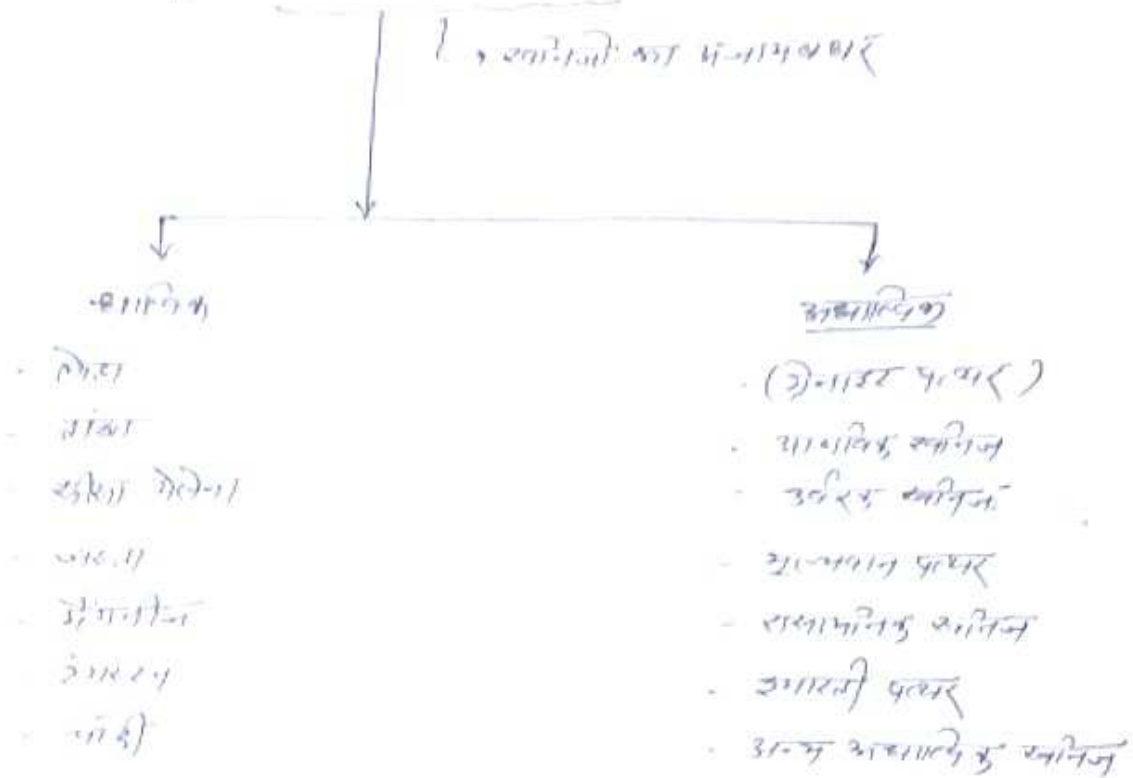 खनिजों का अजायबघर
धात्विक
- लोहा
- तांबा
- सीसा गैलेना
- जस्ता
- मैंगनीज
- टंगस्टन
- चांदी
अधात्विक
- (ग्रेनाइट पत्थर)
- आणविक खनिज
- उर्वरक खनिज
- मूल्यवान पत्थर
- रासायनिक खनिज
- इमारती पत्थर
- अन्य अधात्विक खनिज